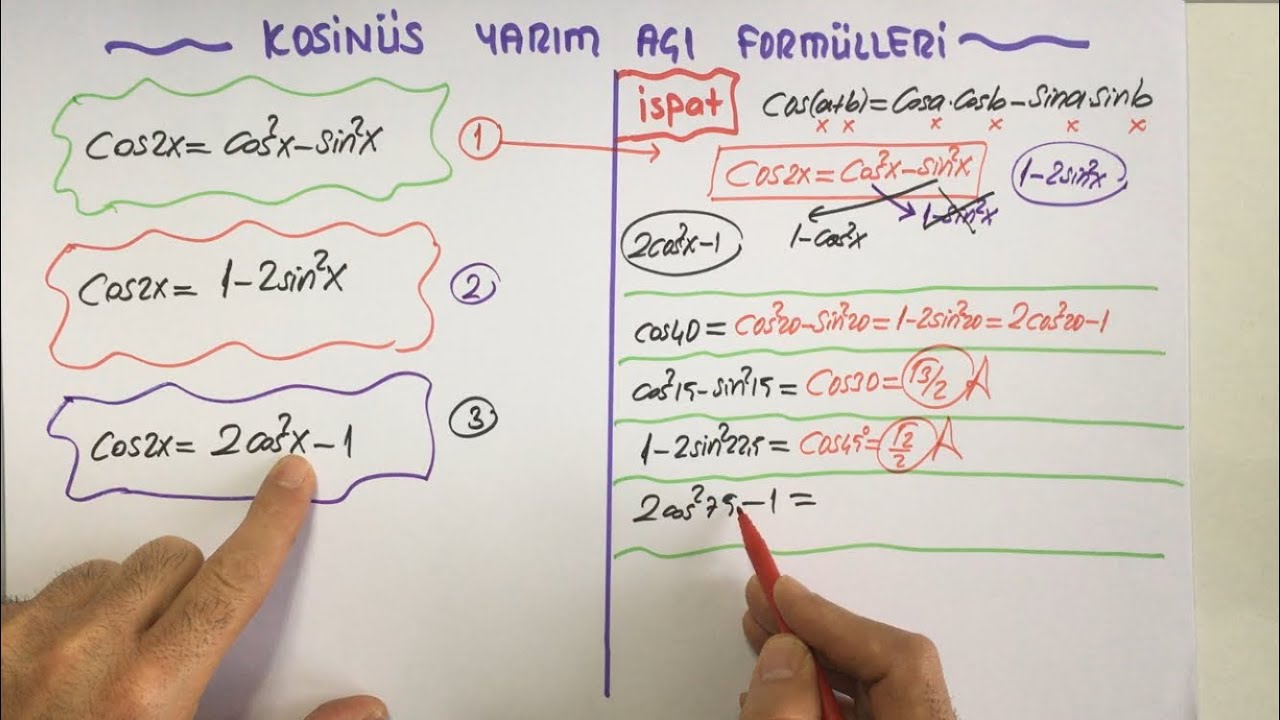 KOSİNÜS YARIM AÇI FORMÜLLERİ
Cos2x = cos²x - sin²x
1
Cos2x = 1 - 2sin²x
2
Cos2x = 2cos²x - 1
3
ispat
Cos(a+b) = Cosa·Cosb - Sina·Sinb
x x x x x x
Cos2x = Cos²x - Sin²x
1-2sin²x
1-Sin²x
1-Cos²x
2cos²x-1
cos40 = Cos²20 - Sin²20 = 1-2sin²20 = 2Cos²20-1
cos²15 - sin²15 = Cos30 = √3/2 A
1 - 2sin²22,5 = Cos45° = √2/2 A
2cos²75 - 1 =